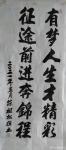 有梦人生才精彩
征途前进奔锦程